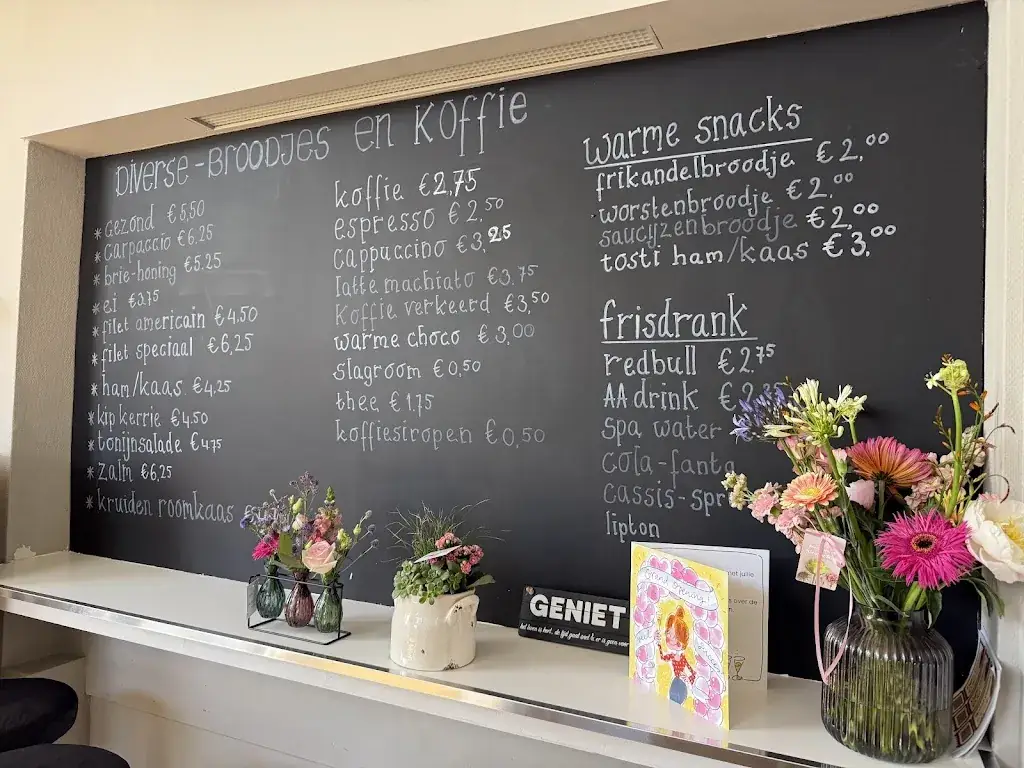 Diverse-Broodjes en Koffie
* gezond €5,50
* carpaccio €6,25
* brie-honing €5,25
* ei €3,75
* filet americain €4,50
* filet speciaal €6,25
* ham/kaas €4,25
* kip kerrie €4,50
* tonijnsalade €4,75
* zalm €6,25
* kruiden roomkaas
koffie €2,75
espresso €2,50
cappuccino €3,25
latte machiato €3,75
koffie verkeerd €3,50
warme choco €3,00
slagroom €0,50
thee €1,75
koffiesiropen €0,50
warme snacks
frikandelbroodje €2,00
worstenbroodje €2,00
saucijzenbroodje €2,00
tosti ham/kaas €3,00
frisdrank
redbull €2,75
AA drink
spa water
cola-fanta
cassis-spr
lipton
GENIET
Grand opening